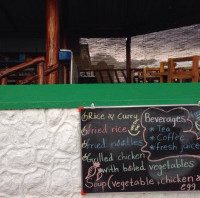 Rice & Curry
Fried rice
Fried noodles
Grilled chicken
with boiled vegetables
Soup (vegetable, chicken &
egg
Beverages
* Tea
* Coffee
* fresh juice